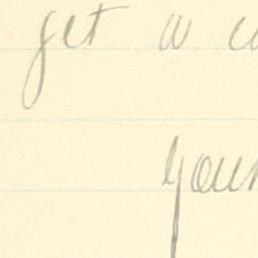 get a
your